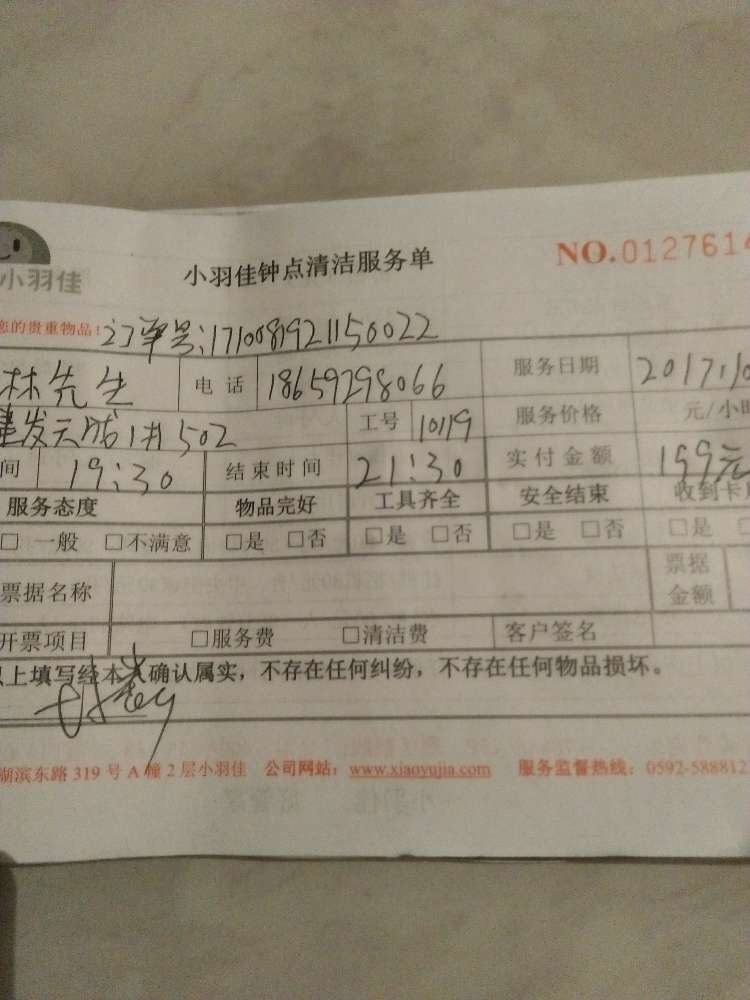 小羽佳
小羽佳钟点清洁服务单
NO.0127614
您的贵重物品! 订单号:1710081921150022
林先生 电话 18659298066 服务日期 2017.10
建发天成1#502 工号 10119 服务价格 元/小时
间 19:30 结束时间 21:30 实付金额 199元
服务态度 物品完好 工具齐全 安全结束 收到卡
□ 一般 □不满意 □是 □否 □是 □否 □是 □否 □是
票据名称 票据金额
开票项目 □服务费 □清洁费 客户签名
以上填写经本人确认属实，不存在任何纠纷，不存在任何物品损坏。
湖滨东路 319 号 A 幢 2 层小羽佳 公司网站：www.xiaoyujia.com 服务监督热线：0592-588812